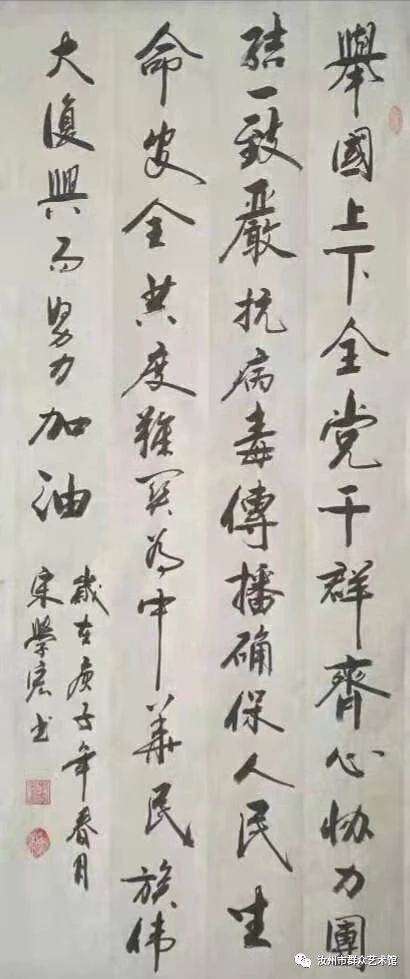 舉國上下全党干群齊心协力團
结一致嚴抗病毒傳播确保人民生
命安全共度難关為中華民族伟
大復興而努力加油
歲在庚子年春月
宋學宏书
汝州市群众艺术馆